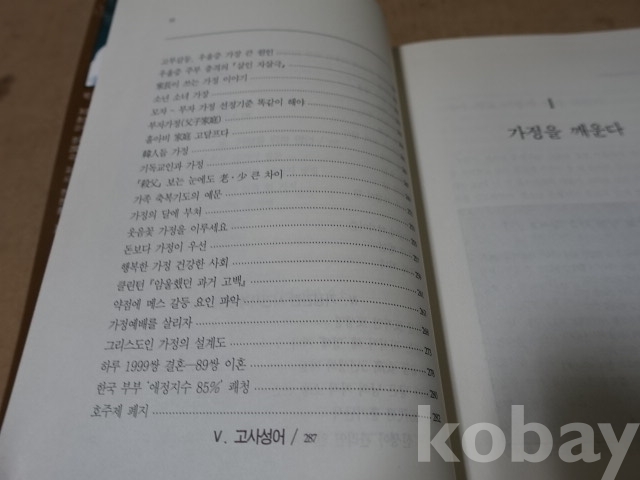 고부갈등, 우울증 가정 큰 원인
우울증 주부 충격의 「살인 자살극」
家長이 쓰는 가정 이야기
소년 소녀 가장
모자 - 부자 가정 선정기준 똑같이 해야
부자가정(父子家庭)
홀아비 家庭 고달프다
韓人들 가정
기독교인과 가정
「殺父」 보는 눈에도 老·少 큰 차이
가족 축복기도의 예문
가정의 달에 부쳐
웃음꽃 가정을 이루세요
돈보다 가정이 우선
행복한 가정 건강한 사회
클린턴 『암울했던 과거 고백』
약점에 메스 갈등 요인 파악
가정예배를 살리자
그리스도인 가정의 설계도 273
하루 1999쌍 결혼—89쌍 이혼 278
한국 부부 '애정지수 85%' 쾌청 280
호주제 폐지 282
V. 고사성어 / 287
I
가정을 깨운다
kobay